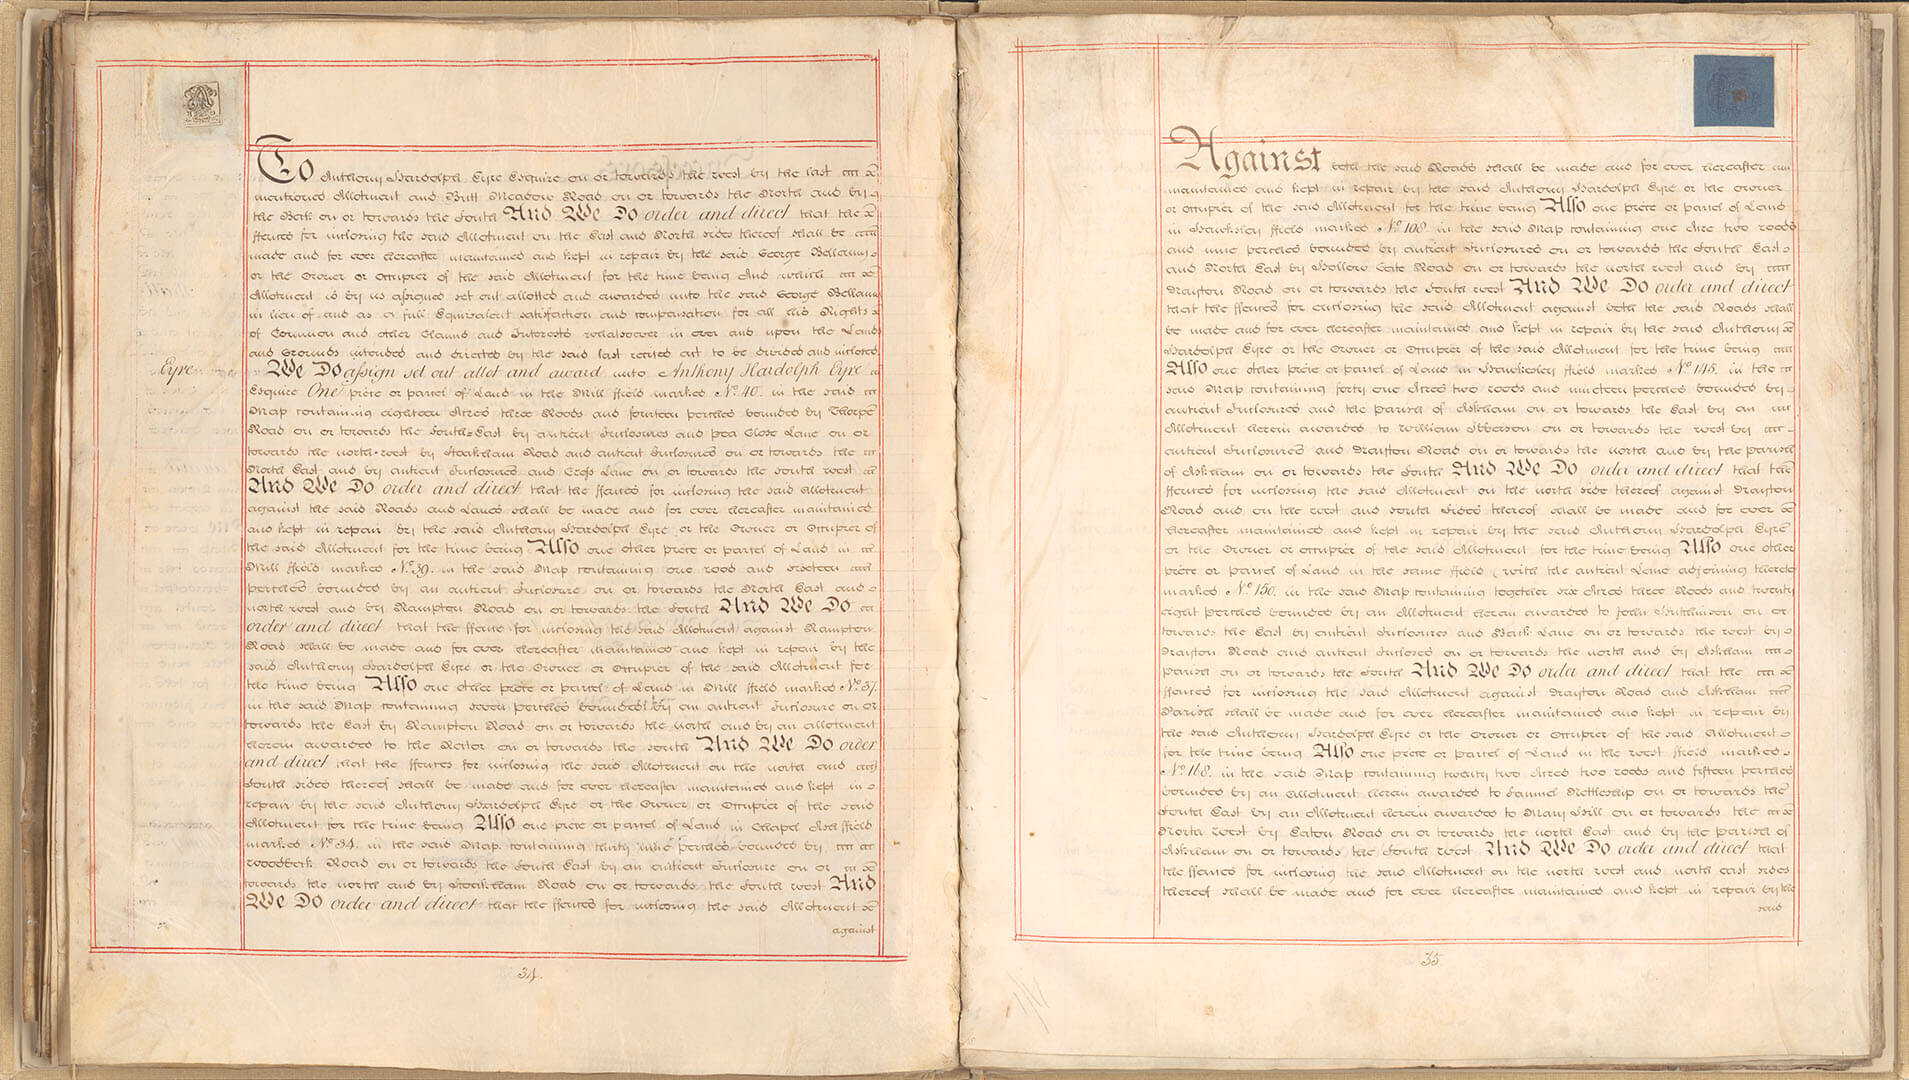 To Anthony Hardolph Eyre Esquire on or towards the West by the last
mentioned Allotment and Butt Meadow Road on or towards the North and by
the Beck on or towards the South And We Do order and direct that the
ffences for inclosing the said Allotment on the East and North sides thereof shall be
made and for ever hereafter maintained and kept in repair by the said George Bellamy
or the Owner or Occupier of the said Allotment for the time being And which
Allotment is by us assigned set out allotted and awarded unto the said George Bellamy
in lieu of and as a full Equivalent satisfaction and compensation for all his Rights
of Common and other Claims and Interests whatsoever in over and upon the Lands
and Grounds intended and directed by the said last recited act to be divided and inclosed
Eyre
We Do assign set out allot and award unto Anthony Hardolph Eyre
Esquire One piece or parcel of Land in the Mill ffield marked No. 40. in the said
Map containing eighteen Acres three Roods and fourteen perches bounded by Thorpe
Road on or towards the South=East by antient Inclosures and pea Close Lane on or
towards the north-west by Stoakham Road and antient Inclosures on or towards the
North East and by antient Inclosures and Cross Lane on or towards the South West
And We Do order and direct that the ffences for inclosing the said Allotment
against the said Roads and Lanes shall be made and for ever hereafter maintained
and kept in repair by the said Anthony Hardolph Eyre or the Owner or Occupier of
the said Allotment for the time being Also one other piece or parcel of Land in
Mill ffield marked No. 39. in the said Map containing one rood and sixteen
perches bounded by an antient Inclosure on or towards the North East and
north west and by Rampton Road on or towards the South And We Do
order and direct that the ffence for inclosing the said Allotment against Rampton
Road shall be made and for ever hereafter maintained and kept in repair by the
said Anthony Hardolph Eyre or the Owner or Occupier of the said Allotment for
the time being Also one other piece or parcel of Land in Mill ffield marked No. 37.
in the said Map containing seven perches bounded by an antient Inclosure on or
towards the East by Rampton Road on or towards the north and by an allotment
herein awarded to the Rector on or towards the south And We Do order
and direct that the ffences for inclosing the said Allotment on the north and
South sides thereof shall be made and for ever hereafter maintained and kept in
repair by the said Anthony Hardolph Eyre or the Owner or Occupier of the said
Allotment for the time being Also one piece or parcel of Land in Chapel Ash ffield
marked No. 34. in the said Map containing thirty nine perches bounded by
Woodbeck Road on or towards the South East by an antient Inclosure on or
towards the north and by Stoakham Road on or towards the South West And
We Do order and direct that the ffences for inclosing the said Allotment
against
34.
Against both the said Roads shall be made and for ever hereafter
maintained and kept in repair by the said Anthony Hardolph Eyre or the owner
or occupier of the said Allotment for the time being Also one piece or parcel of Land
in Hawksley ffield marked No. 108. in the said Map containing one Acre two roods
and nine perches bounded by antient Inclosures on or towards the South East
and North East by Hollow Gate Road on or towards the north west and by
Drayton Road on or towards the South West And We Do order and direct
that the ffences for enclosing the said Allotment against both the said Roads shall
be made and for ever hereafter maintained and kept in repair by the said Anthony
Hardolph Eyre or the Owner or Occupier of the said Allotment for the time being
Also one other piece or parcel of Land in Hawksley ffield marked No. 145. in the
said Map containing forty one Acres two roods and nineteen perches bounded by
antient Inclosures and the parish of Askham on or towards the East by an
Allotment herein awarded to William Ibberson on or towards the West by
antient Inclosures and Drayton Road on or towards the north and by the parish
of Askham on or towards the South And We Do order and direct that the
ffences for inclosing the said Allotment on the north side thereof against Drayton
Road and on the west and south Sides thereof shall be made and for ever
hereafter maintained and kept in repair by the said Anthony Hardolph Eyre
or the Owner or occupier of the said Allotment for the time being Also one other
piece or parcel of Land in the same ffield (with the antient Lane adjoining thereto
marked No. 150. in the said Map containing together six Acres three Roods and twenty
eight perches bounded by an Allotment herein awarded to John Hutchinson on or
towards the East by antient Inclosures and Back Lane on or towards the West by
Drayton Road and antient Inclosed on or towards the north and by Askham
parish on or towards the South And We Do order and direct that the
ffences for inclosing the said Allotment against Drayton Road and Askham
Parish shall be made and for ever hereafter maintained and kept in repair by
the said Anthony Hardolph Eyre or the Owner or Occupier of the said Allotment
for the time being Also one piece or parcel of Land in the West ffield marked
No. 168. in the said Map containing twenty two Acres two roods and fifteen perches
bounded by an Allotment herein awarded to Samuel Nettleship on or towards the
South East by an Allotment herein awarded to Mary Hill on or towards the
North West by Eaton Road on or towards the north East and by the parish of
Askham on or towards the South west And We Do order and direct that
the ffences for inclosing the said Allotment on the north west and north east sides
thereof shall be made and for ever hereafter maintained and kept in repair by the
said
35